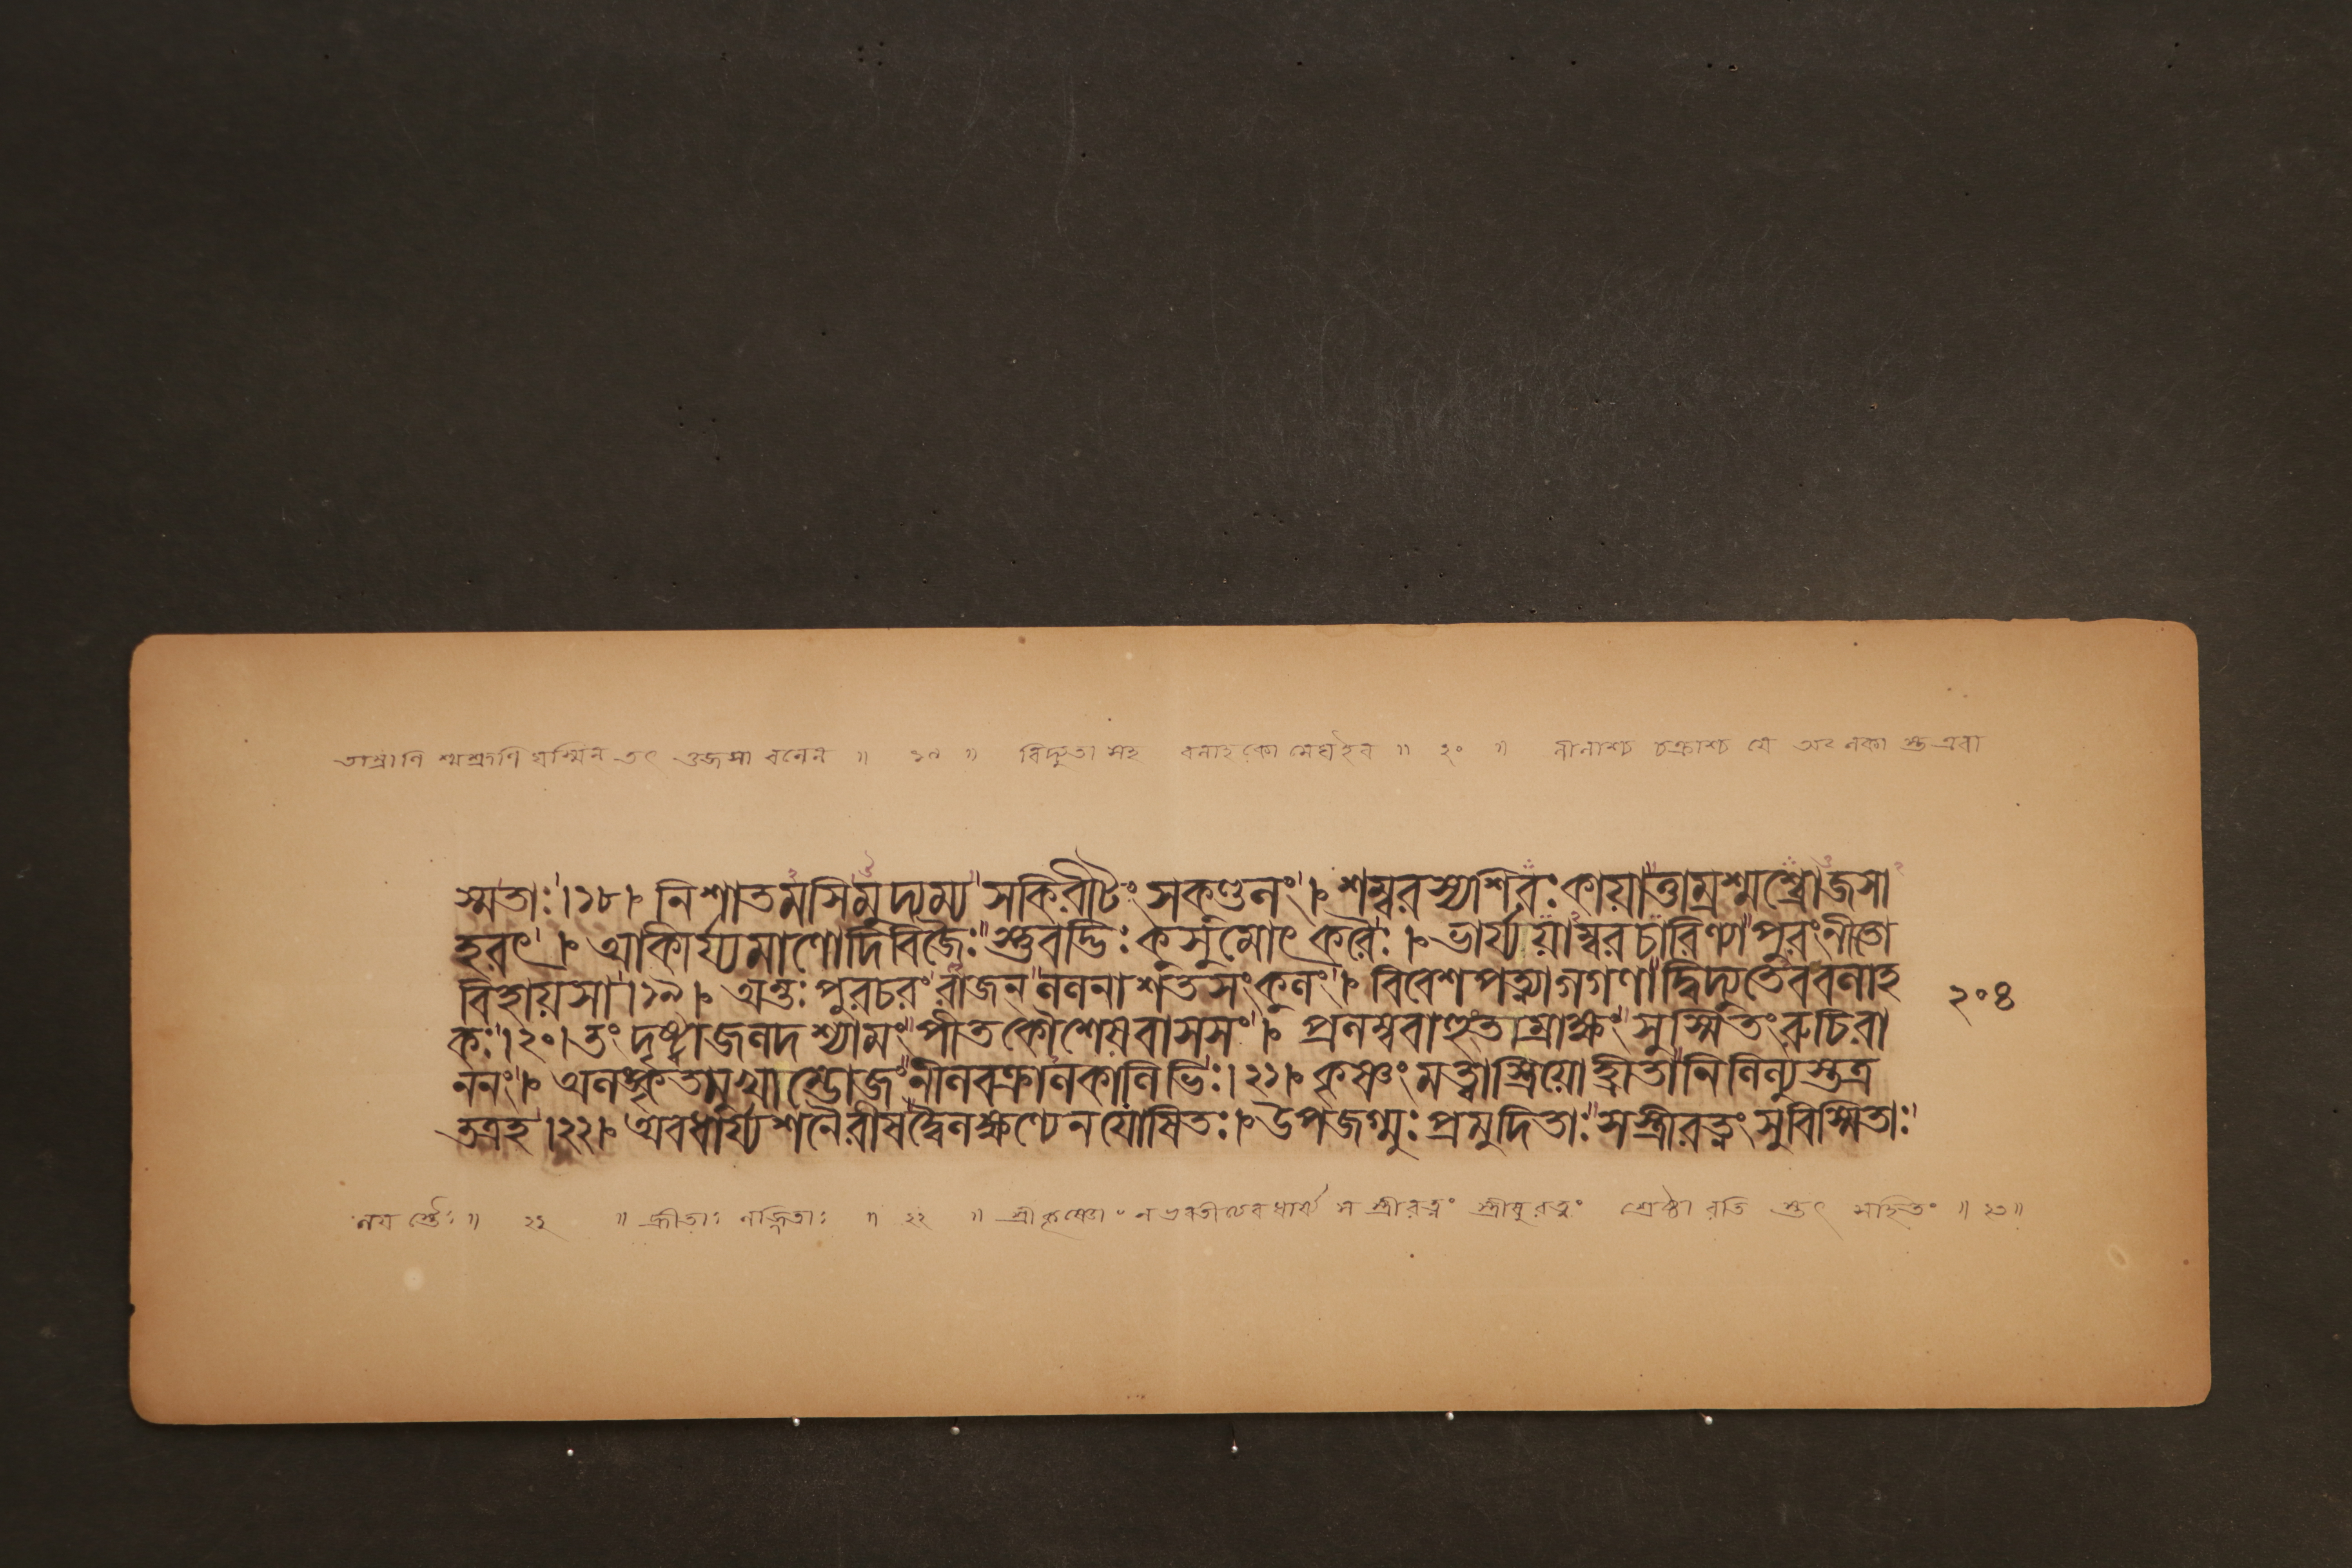 তাম্রাণি শ্মশ্রুণি যস্মিন তৎ ওজসা বলেন ॥ ১৯ ॥ বিদ্যুতা সহ বলাহকো মেঘইব ॥ ২০ ॥ নীলাশ্চ বক্রাশ্চ যে অলকাস্ত এবা
স্মৃতাঃ।১৮। নিশাতমসিমুদ্যম্য সকিরীটং সকুণ্ডলং। শম্বরস্য শিরঃ কায়াত্তাম্রশ্মশ্র্বোজসা
হরৎ। আকীর্য্যমাণো দিবিজৈঃ স্তুবদ্ভিঃ কুসুমোৎকরৈঃ। ভার্য্যয়াম্বরচারিণ্যা পুরং নীতো
বিহায়সা।১৯। অন্তঃপুরচরং রাজন্ ললনাশতসংকুলং। বিবেশ পত্ন্যা গগণাদ্বিদ্যুতেব বলাহ
কঃ।২০। তং দৃষ্ট্বা জলদশ্যামং পীতকৌশেয়বাসসং। প্রলম্ববাহুং তাম্রাক্ষং সুস্মিতং রুচিরা
ননং। অলঙ্কৃতমুখাম্ভোজং নীলবক্রালকালিভিঃ।২১। কৃষ্ণং মত্বা স্ত্রিয়ো হ্রীতা নিলিল্যুস্তত্র
তত্রহ।২২। অবধার্য্য শনৈরীষদ্বৈলক্ষণ্যেন যোষিতঃ। উপজগ্মুঃ প্রমুদিতাঃ সস্ত্রীরত্নং সুবিস্মিতাঃ
২০৪
॥ হ্রীতাঃ লজ্জিতাঃ ॥ ২২ ॥ শ্রীকৃষ্ণো ন ভবতীত্যেবধার্য স স্ত্রীরত্নং স্ত্রীষুরত্নং শ্রেষ্ঠা রতি স্তৎ সহিতং ॥ ২৩॥